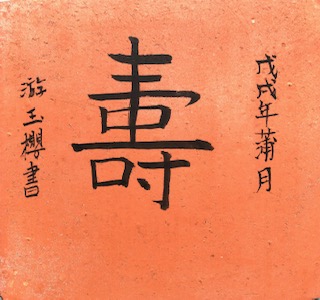 戊戌年蒲月
壽
游玉櫻書